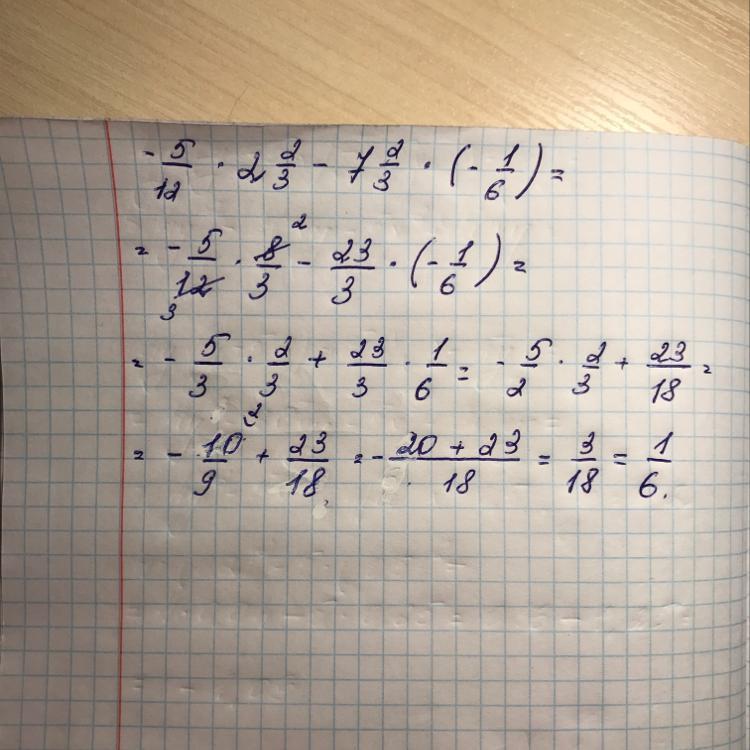 -5/12 · 2 2/3 - 7 2/3 · (-1/6) =
= -5/12 3 · 8/3 2 - 23/3 · (-1/6) =
= -5/3 · 2/3 + 23/3 · 1/6 = -5/2 · 2/3 + 23/18 =
= -10/9 (2 + 23/18 = -20 + 23/18 = 3/18 = 1/6.